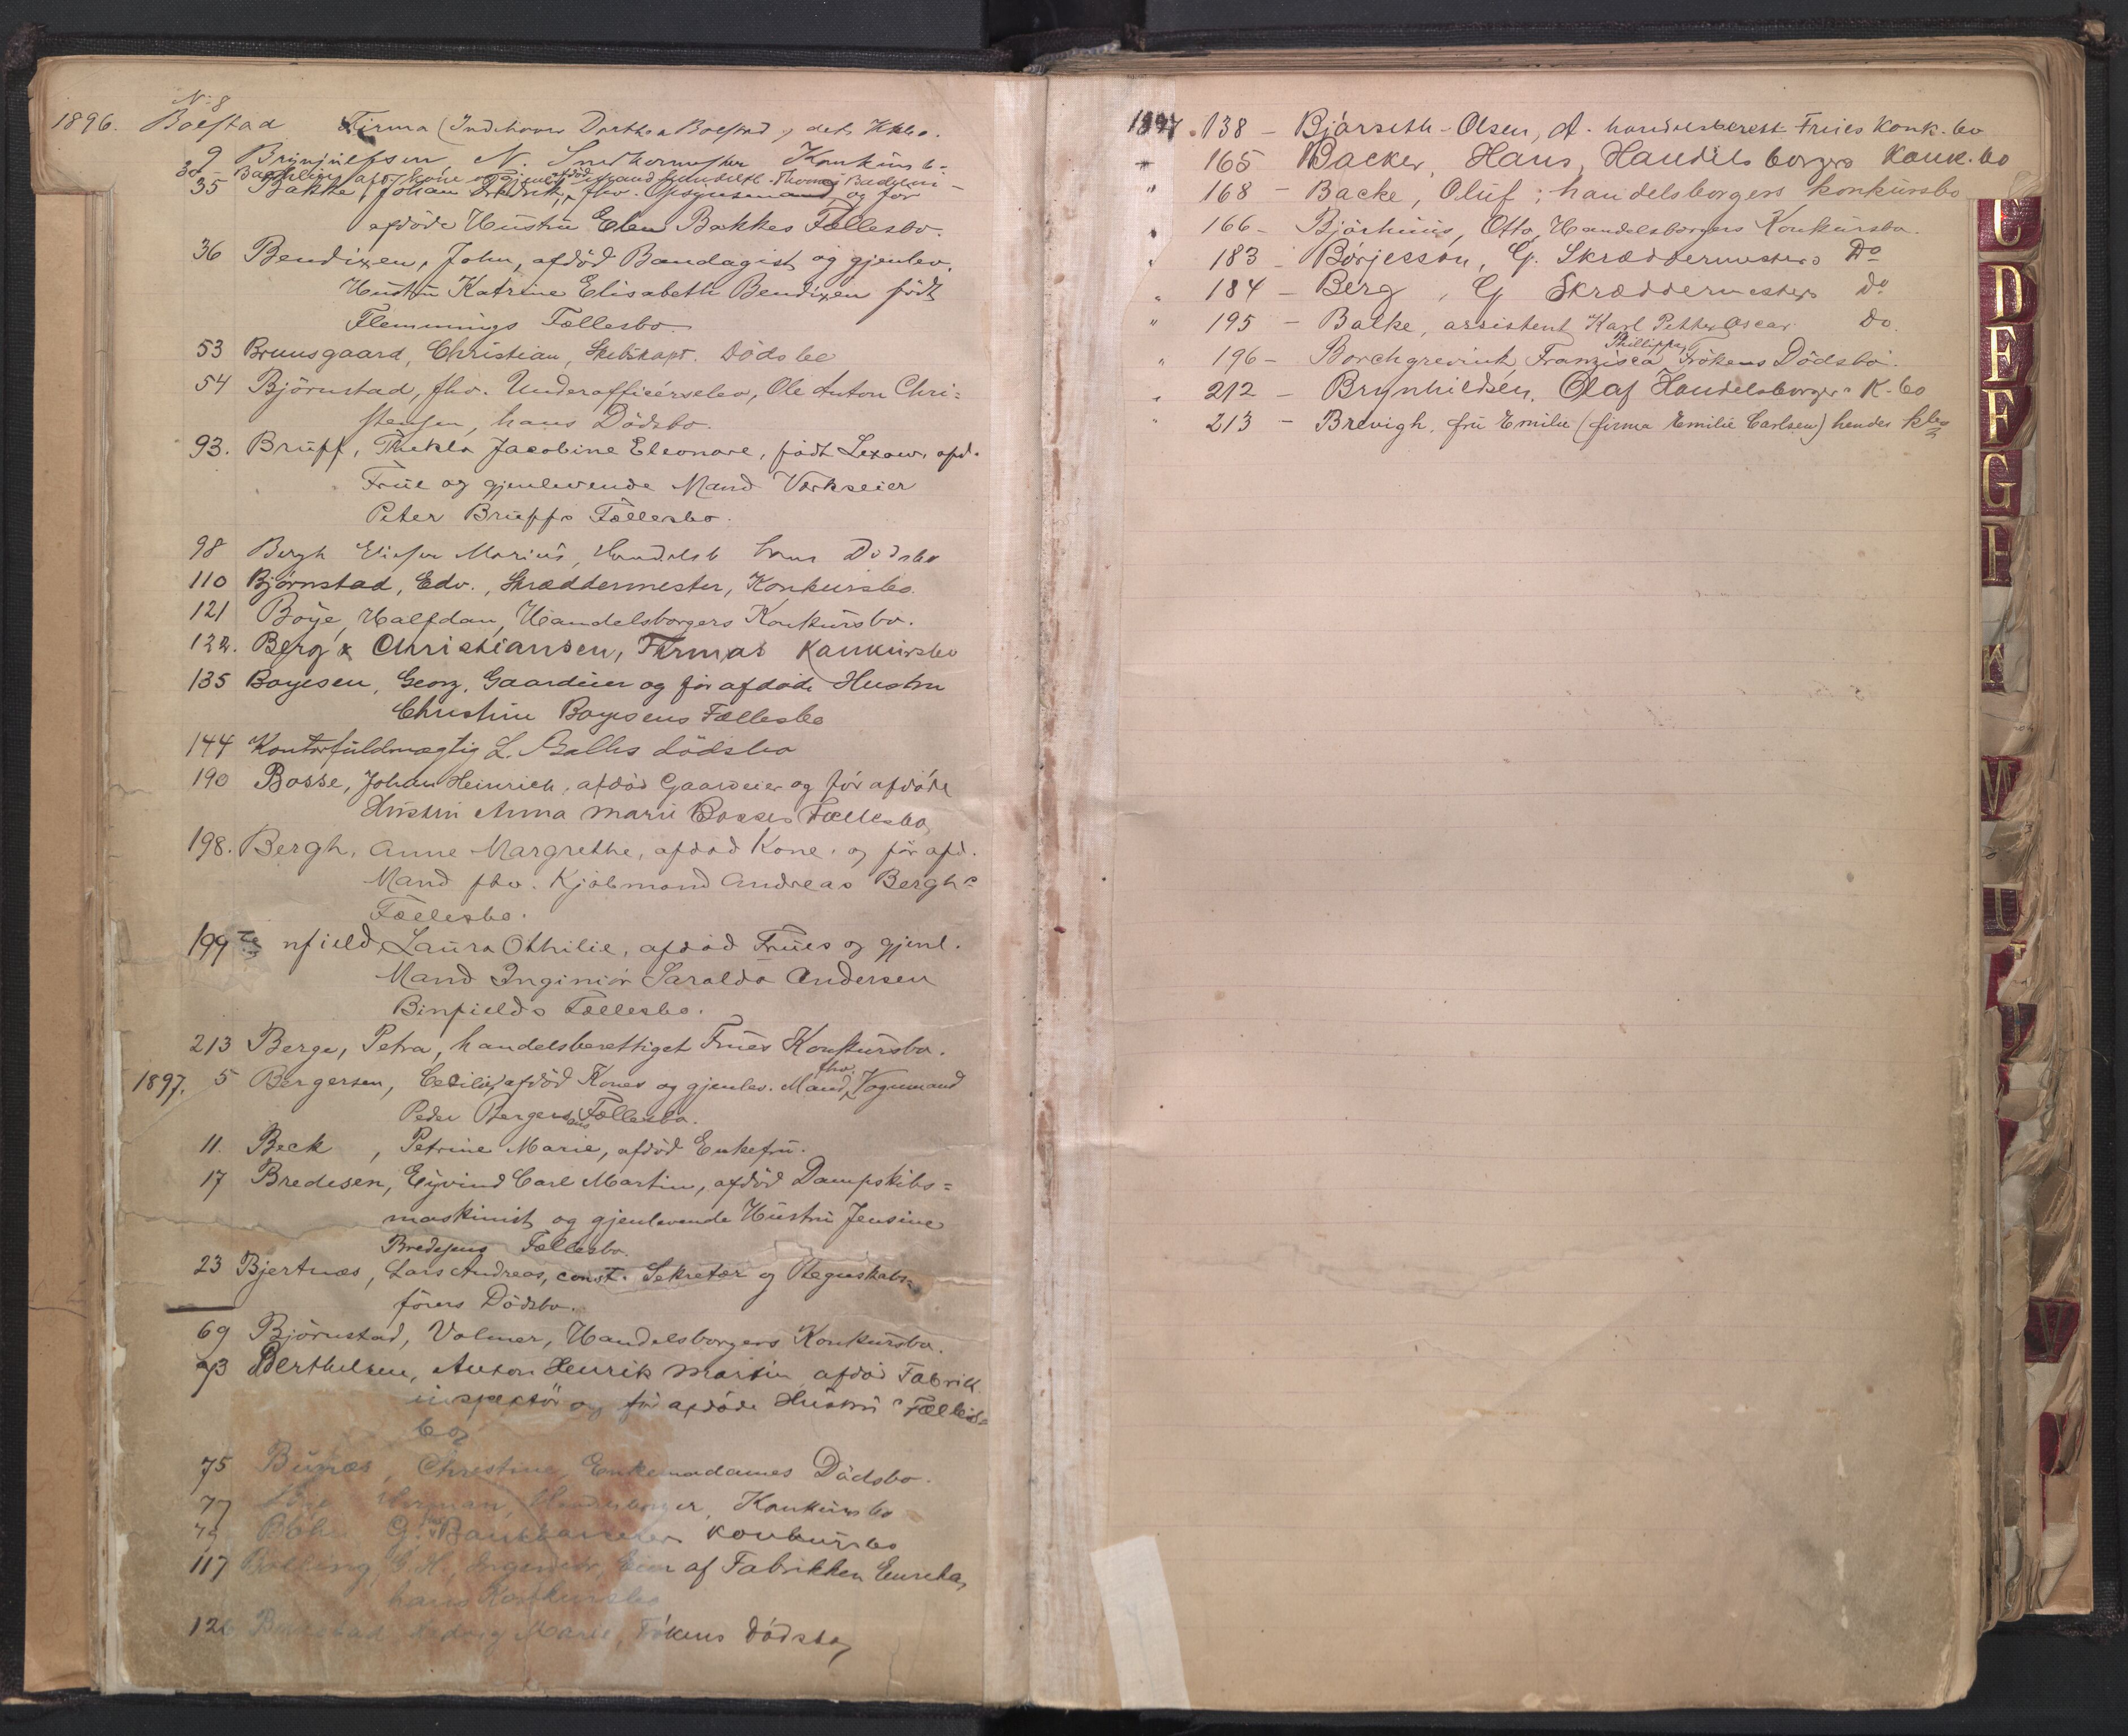 1896. No 8
Boestad Firma (Indehaver Dorthea Boestad) dets Kkbo.
9 Brynjulfsen, N. Snedkermester Konkursb-
30 -
35 Bakke, Johan Fredrik, afdöd fhv. Opsynsmand og før
afdöde Hustru Elen Bakkes Fællesbo.
36 Bendixen, John, afdöd Bandagist og gjenlev.
Hustru Katrine Elisabeth Bendixen födt
Flemmings Fællesbo
53 Bruusgaard, Christian, Skibskapt. Dödsbo
54 Björnstad, fhv. Underofficérselev, Ole Anton Chri=
stensen, hans Dödsbo.
93. Brüff, Thekla Jacobine Eleonore, födt Lexow, afd.
Frue og gjenlevende Mand Værkseier
Peter Brüffs Fællesbo.
98 Bergh Eliesen Marius, Handelsb hans Dödsbo
110 Björnstad, Edv., Skræddermester, Konkursbo.
121 Boye, Halfdan, Handelsborgers Konkursbo.
122. Berg & Christiansen, Firmas Konkursbo
135 Boyesen, Georg, Gaardeier og før afdøde Hustru
Christine Boyesens Fællesbo
144 Kontorfuldmægtig L. Balles dödsbo
190 Bosse, Johan Heinrich, afdöd Gaardeier og før afdöde
Hustru Anna Marie Bosses Fællesbo
198. Bergh, Anne Margrethe, afdöd Kone, og før afd.
Mand fhv. Kjøbmand Andreas Berghs
Fællesbo.
199 nfield, Laura Othilie, afdöd Frues og gjenl.
Mand Ingeniör Saraldo Andersen
Binfields Fællesbo.
213 Berge, Petra, handelsberettiget Frues Konkursbo.
1897. 5 Bergersen, Cecilie, afdöd Kones og gjenlev. Mand, fhv. Vognmand
Peder Bergersens Fællesbo.
11. Beck, Petrine Marie, afdöd Enkefru.
17 Bredesen, Eyvind Carl Martin, afdöd Dampskibs=
maskinist og gjenlevende Hustru Jensine
Bredesens Fællesbo.
23 Bjertnæs, Lars Andreas, const. Sekretær og Regnskabs=
förers Dödsbo.
69 Björnstad, Volmer, Handelsborgers Konkursbo.
73 Berthelsen, Anton Henrik Martin afdöd Fabrik
inspektör og før afdöde Hustrus Fælles=
bo
75 Bunæs, Christine, Enkemadames Dödsbo.
77 Herman, Handelsborger, Konkursbo
79 G. Konkursbo
117 Bölling, G. H., Ingeniör, Eier af Fabrikken Eureka,
hans Konkursbo
126 Hedvig Marie, Frökens dödsbo
1897. 138 - Bjørseth-Olsen, A. handelsberett Frues Konk.bo
165 Backer, Hans, Handelsborgers Konk.bo
" 168 - Backe, Oluf; handelsborgers konkursbo
166 - Björhuus, Otto, Handelsborgers Konkursbo.
" 183 - Börjesson, G. Skræddermesters Do
" 184 - Berg, G Skræddermesters do
" 195 - Balke, assistent Karl Petter Oscar do.
" 196 - Borchgrevink, Franzisca Phillippa, Frökens Dödsbo.
" 212 - Brynhildsen, Olaf Handelsborgers K-bo
" 213 - Brevigh, fru Emilie (firma Emilie Carlsen) hendes kbo
C
D
E
F
G
H
K
M
U
V